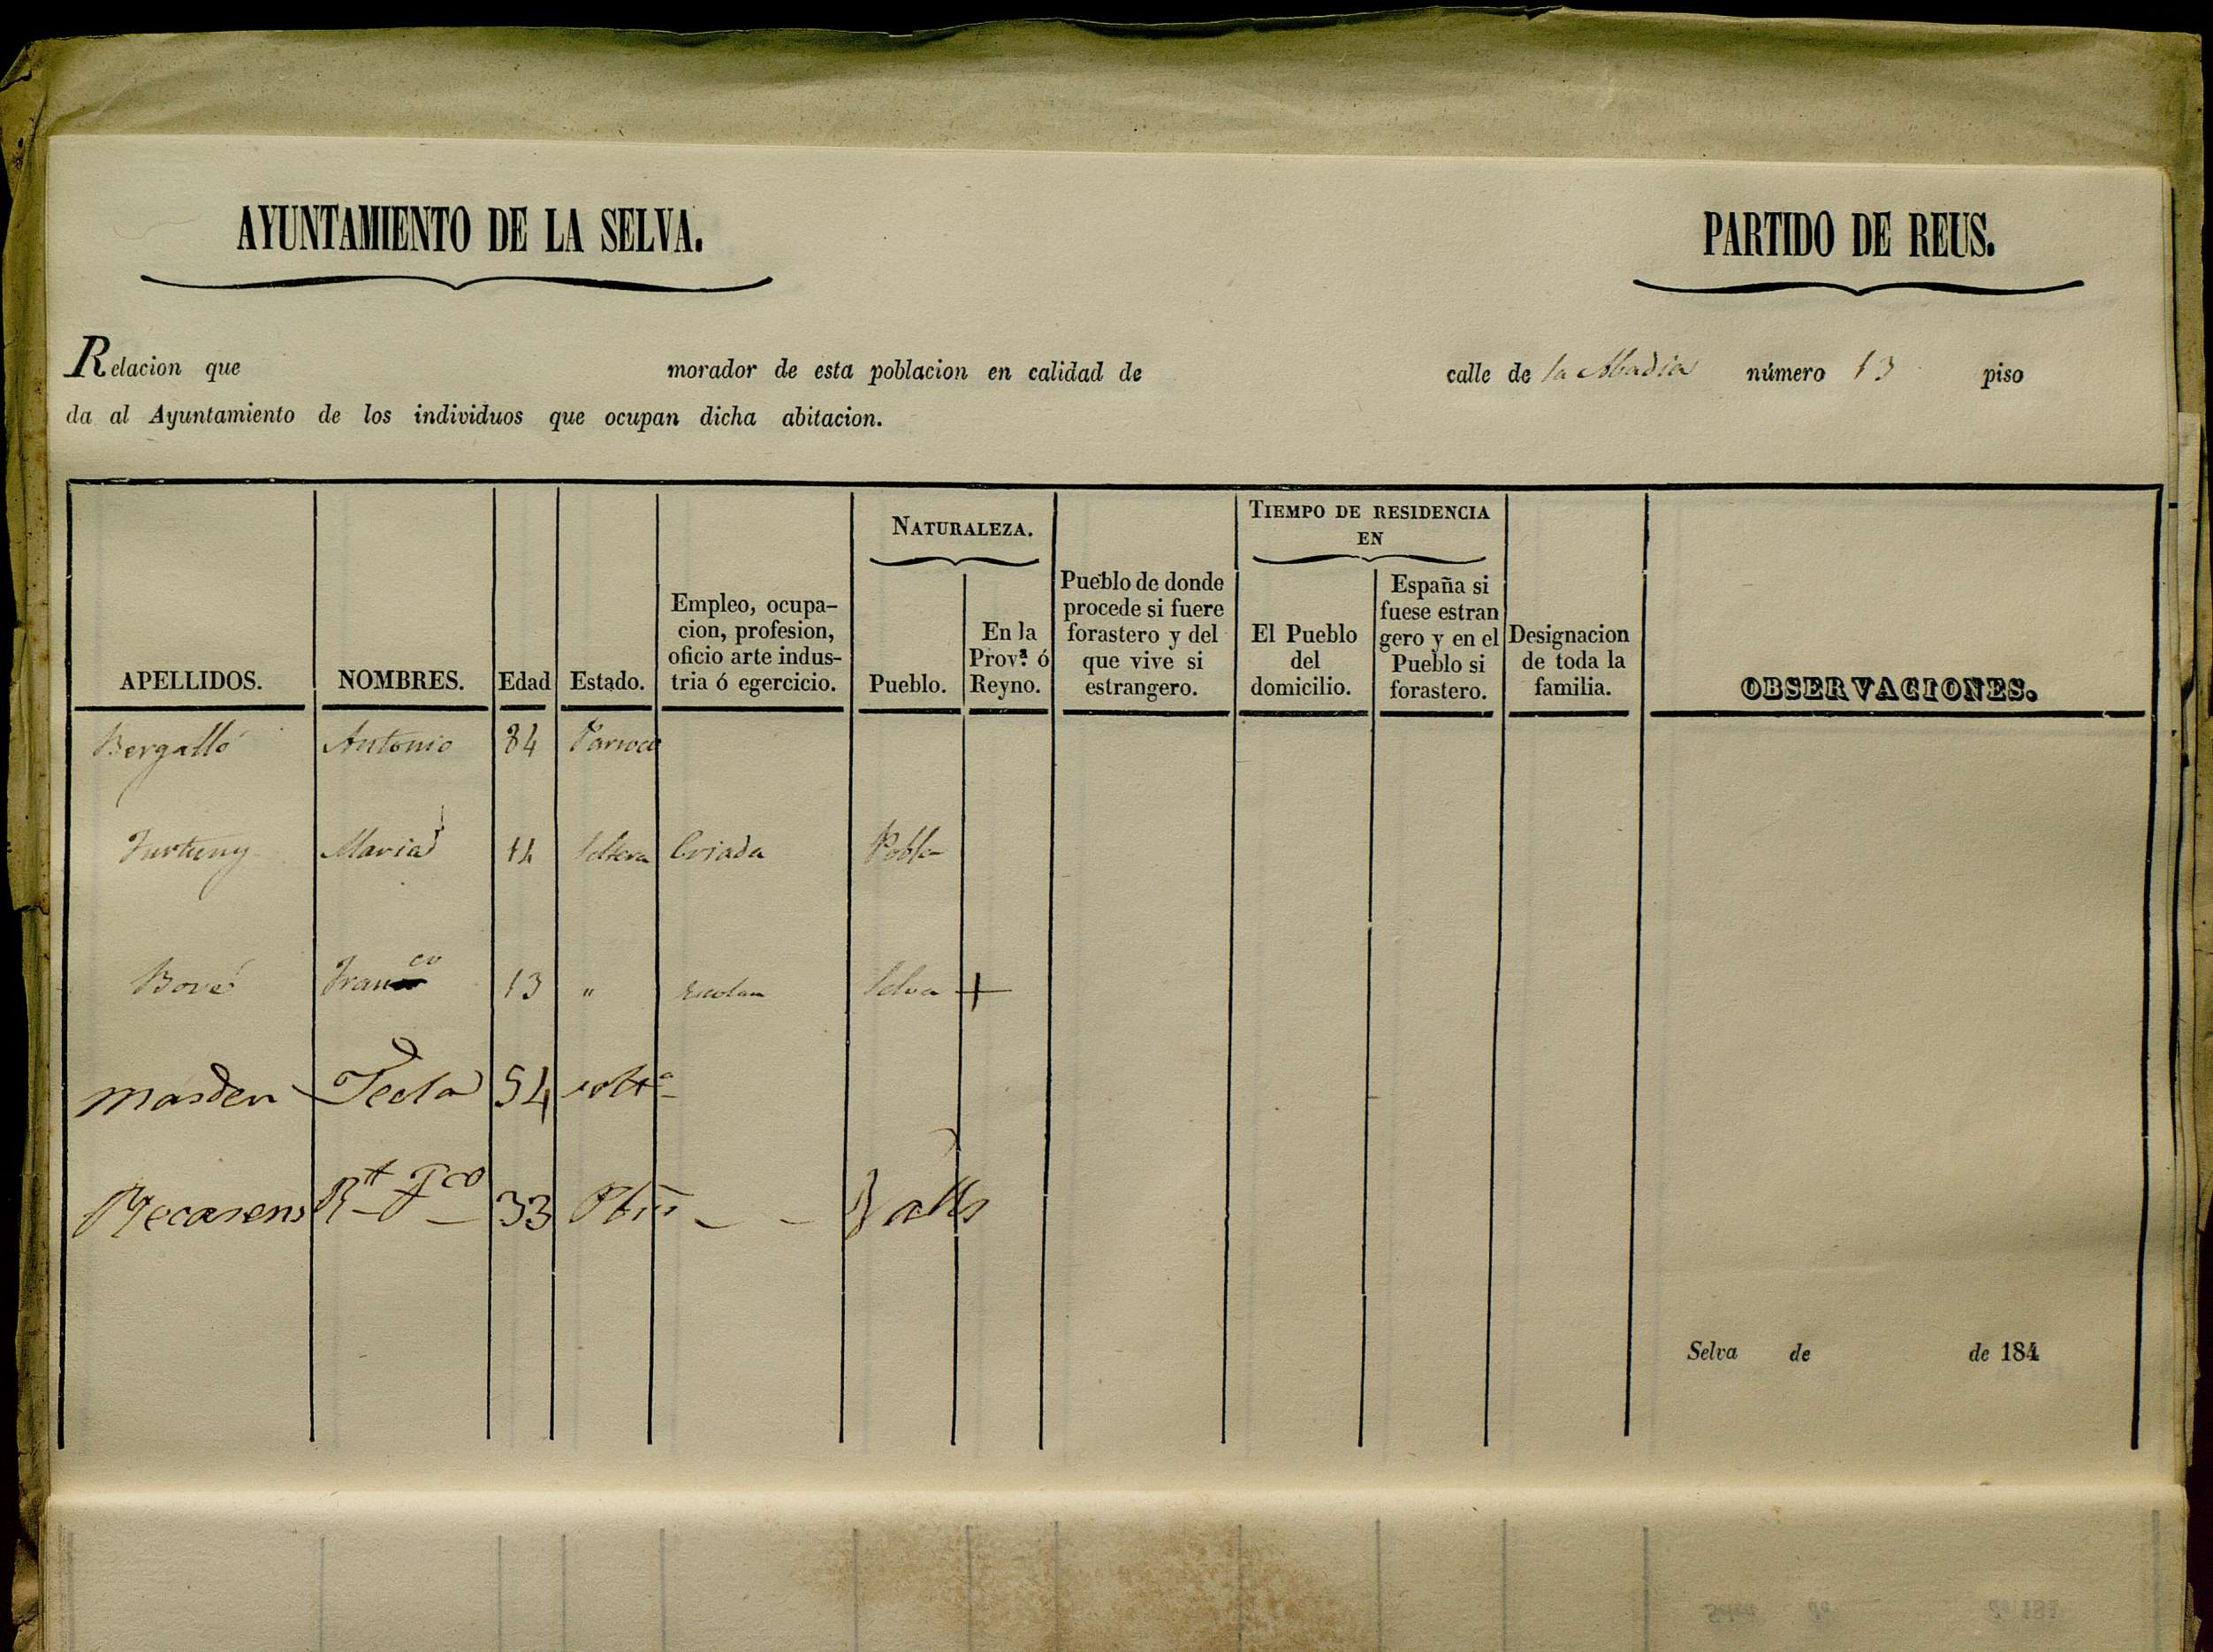 AYUNTAMIENTO DE LA SELVA. PARTIDO DE REUS.
Relacion que morador de esta poblacion en calidad de calle de la Abadia número 13 piso
da al Ayuntamiento de los individuos que ocupan dicha abitacion.
NATURALEZA. TIEMPO DE RESIDENCIA EN
APELLIDOS. NOMBRES. Edad Estado. Empleo, ocupa-cion, profesion, oficio arte indus-tria ó egercicio. Pueblo. En la Prov.ª ó Reyno. Pueblo de donde procede si fuere forastero y del que vive si estrangero. El Pueblo del domicilio. España si fuese estran gero y en el Pueblo si forastero. Designacion de toda la familia. OBSERVACIONES.
Bergalló Antonio 84 Parroco
Furtuny Maria soltera Criada Pobla
Bové Fran co 13 " Escolan Selva +
Masdeu Tecla 54 soltª
Recasens Rt Fco 33 Pbro - - Valls
Selva de de 184